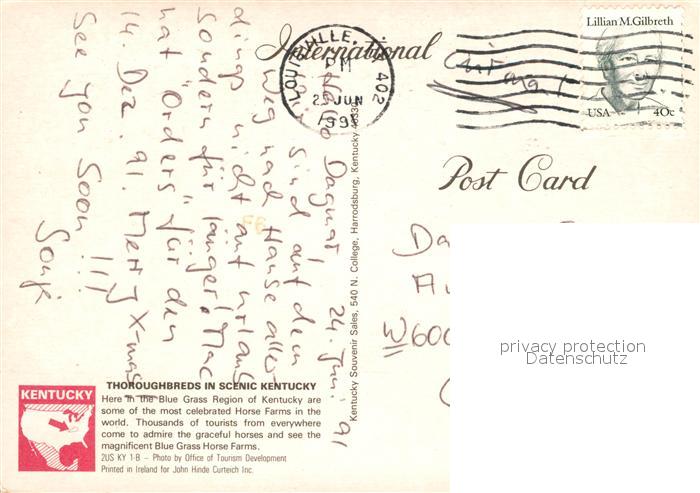 International
Lillian M.Gilbreth
USA 40c
LOUISVILLE, KY 402
PM
25 JUN
1991
Post Card
24. Juni 91
Hallo Dagmar
wir sind auf dem
Weg nach Hause aller-
dings nicht auf Urlaub
sondern für länger! Mac
hat "Orders" für den
14. Dez. 91. Merry X-mas
See you soon !!!
Sonji
Da
W600
Kentucky Souvenir Sales, 540 N. College, Harrodsburg, Kentucky 40330
KENTUCKY
THOROUGHBREDS IN SCENIC KENTUCKY
Here in the Blue Grass Region of Kentucky are
some of the most celebrated Horse Farms in the
world. Thousands of tourists from everywhere
come to admire the graceful horses and see the
magnificent Blue Grass Horse Farms.
2US KY 1-B - Photo by Office of Tourism Development
Printed in Ireland for John Hinde Curteich Inc.
privacy protection
Datenschutz